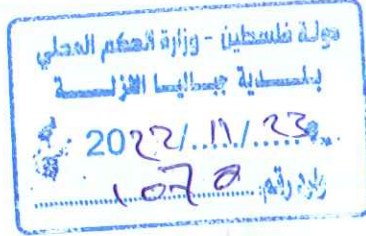 دولة فلسطين - وزارة الحكم المحلي
بلدية جباليا النزلة
2022/11/23
وارد رقم